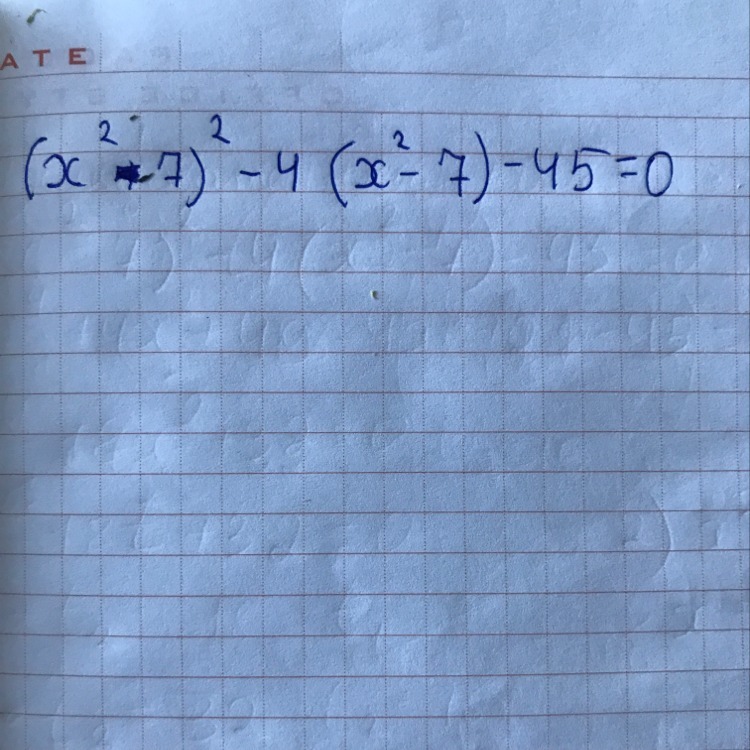 ATE
(x² - 7)² - 4 (x² - 7) - 45 = 0